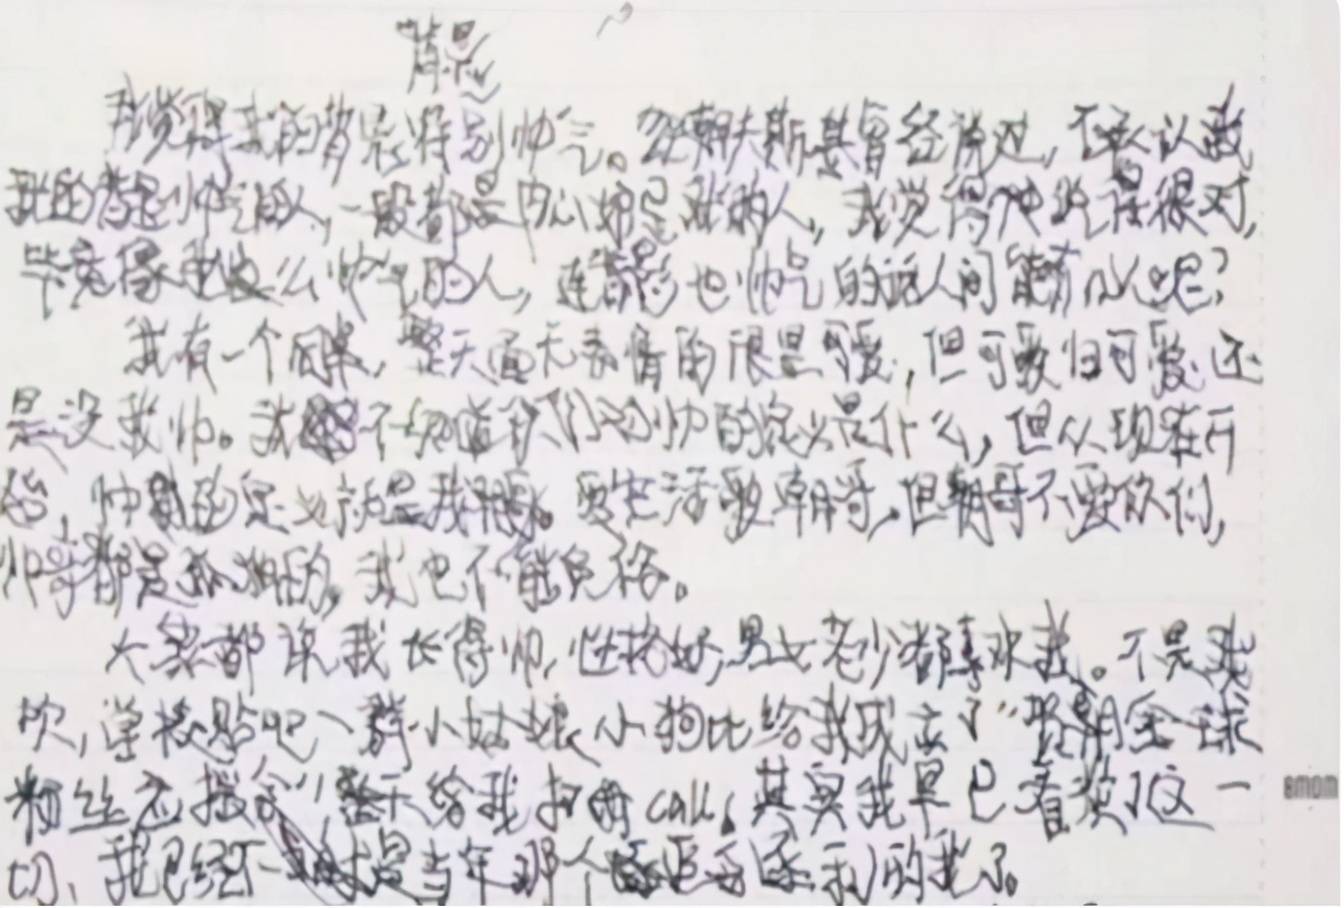 背影
我觉得我的背影特别帅气。路朝夫斯基曾经说过,不承认我
我的背影帅气的人,一般都是内心妒忌我的人,我觉得他说得很对,
毕竟像我这么帅气的人,连背影也帅气的话人间能有几人呢?
我有一个同桌,整天面无表情的很是可爱,但可爱归可爱,还
是没我帅。我不知道你们对帅的定义是什么,但从现在开
始,帅的定义就是我。爱生活爱朝哥,但朝哥不爱你们,
帅哥都是孤独的,我也不能免俗。
大家都说我长得帅,性格好,男女老少都喜欢我。不是我
吹,学校贴吧一群小姑娘小狗比给我成立了“路朝全球
粉丝应援会”,整天给我打call,其实我早已看淡了这一
切、我已经不是当年那个追名逐利的我了。
8mm